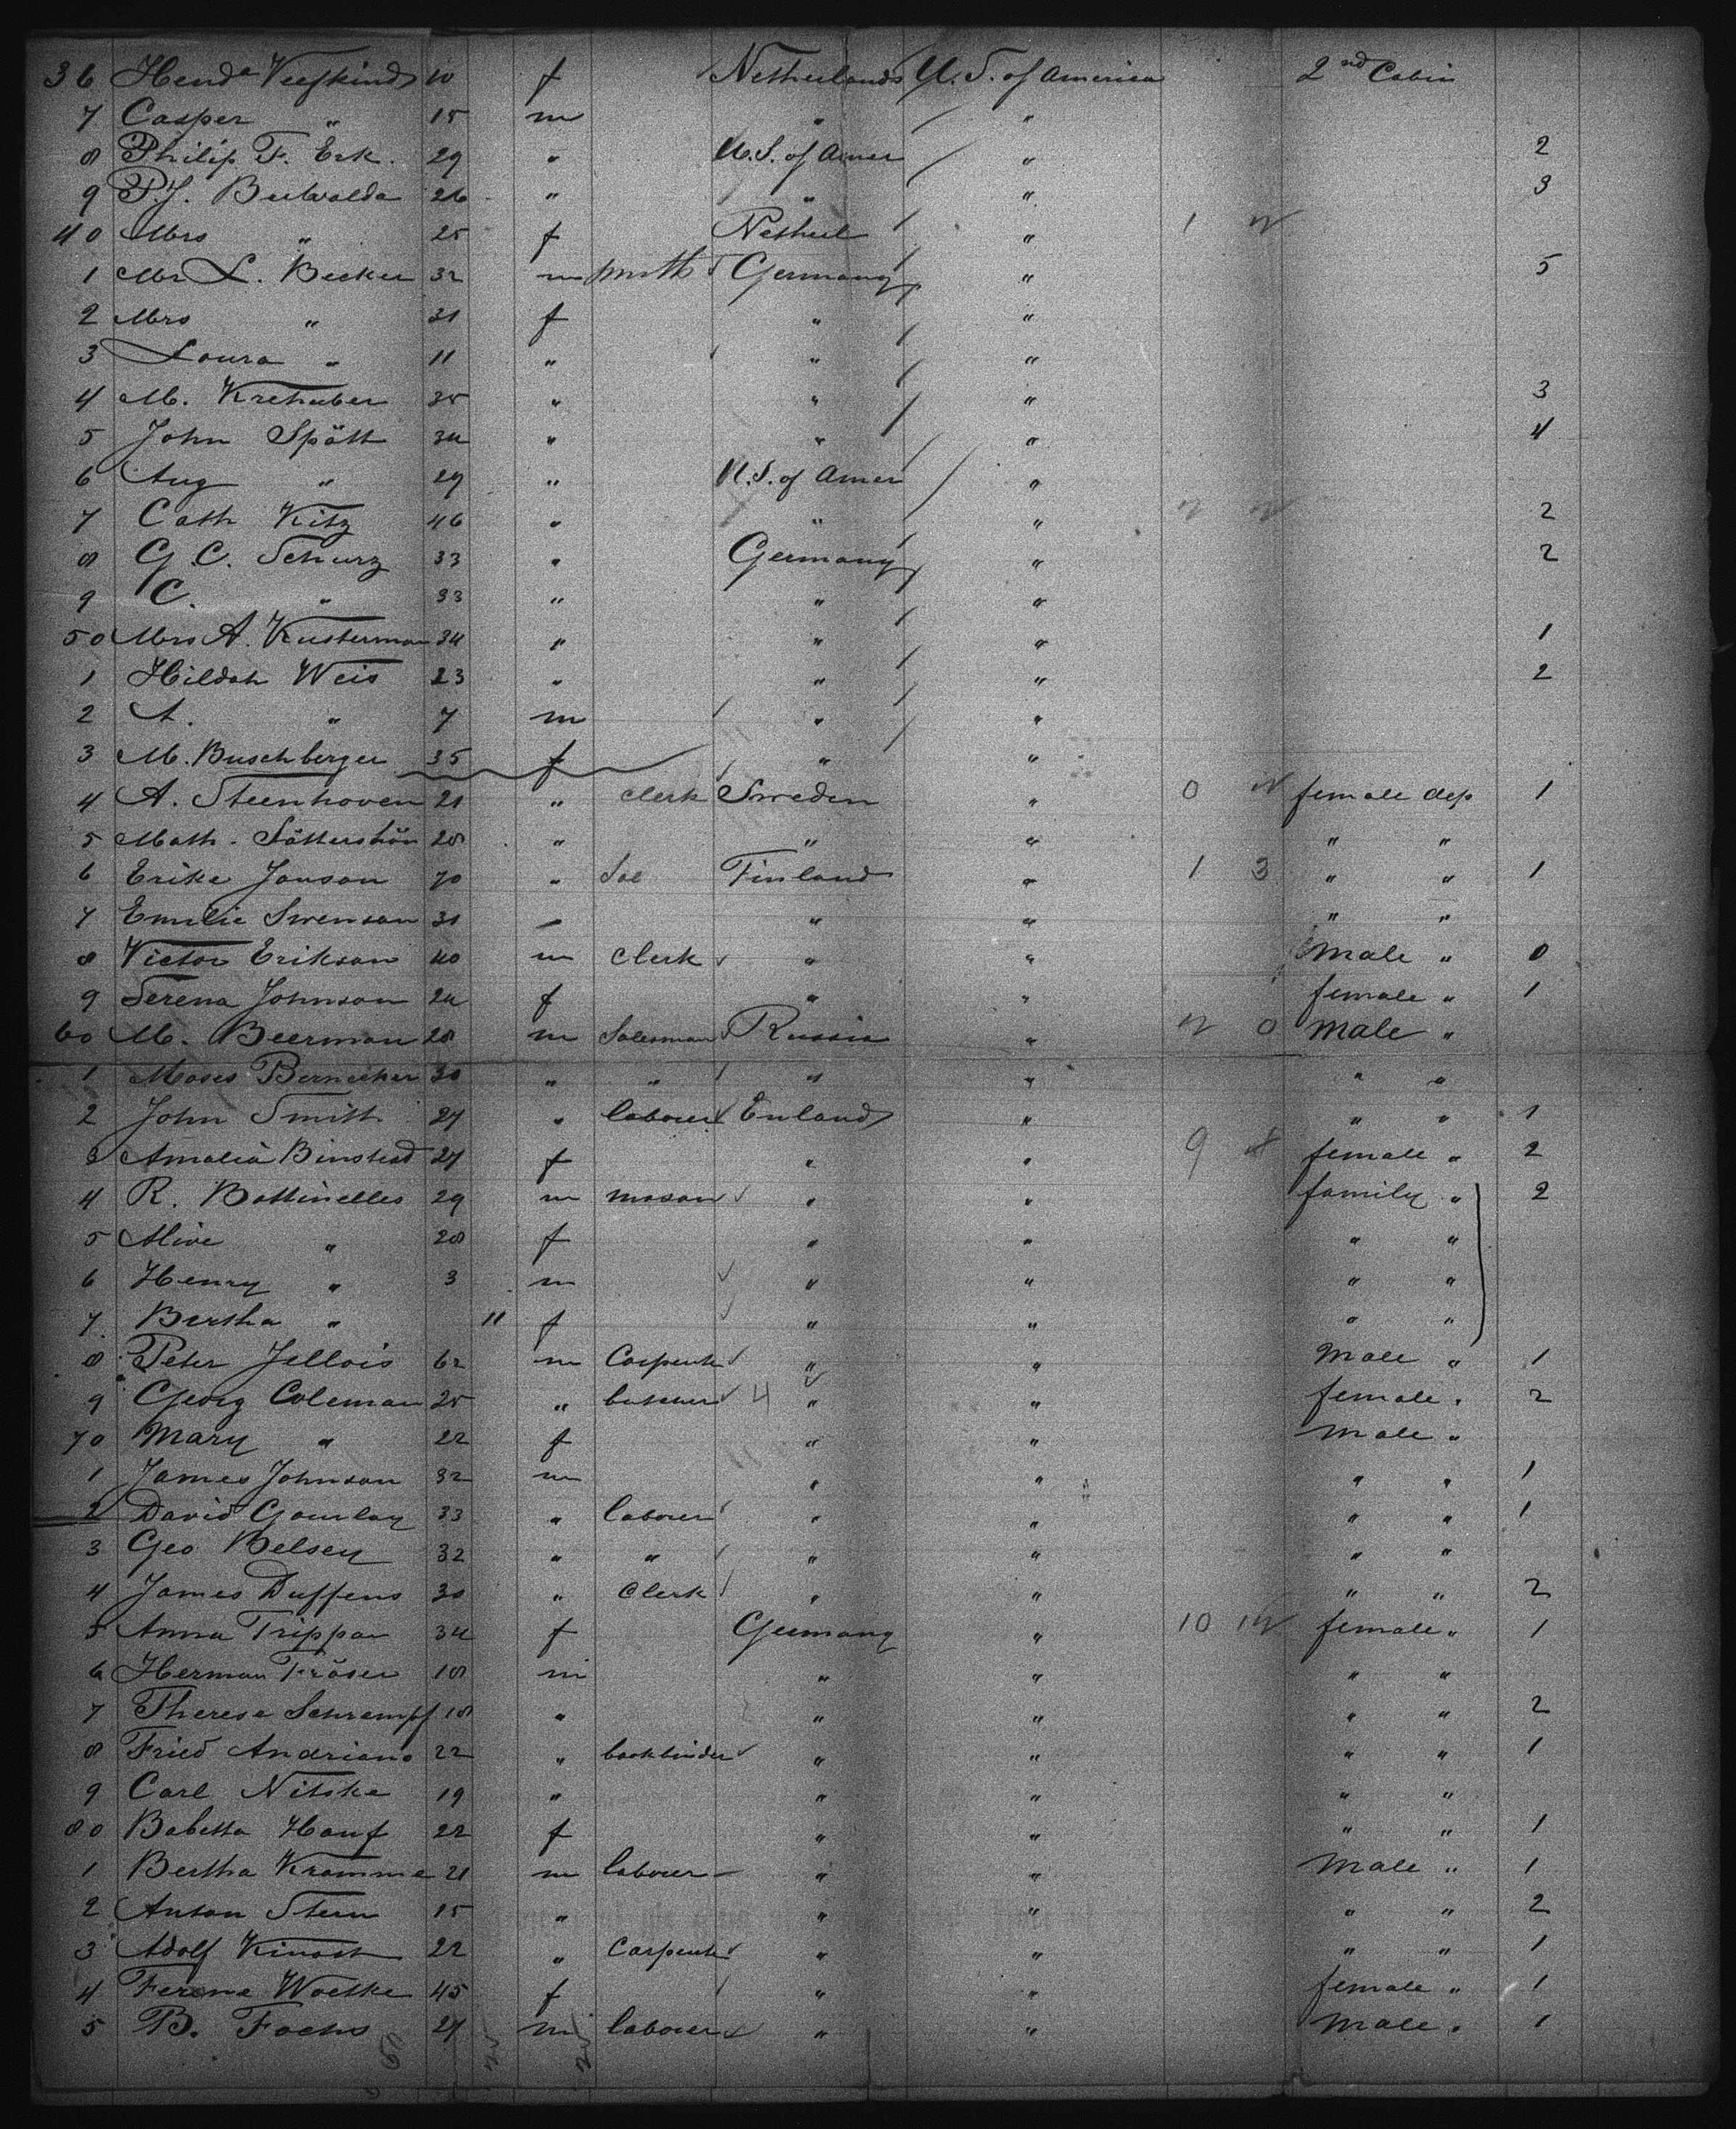 36 Hend Veefkind 10 f Netherlands U. S. of America 2nd Cabin
7 Casper " 15 m " "
8 Philip F. Erk. 29 " U.S. of Amer " 2
9 P.J. Beilvalda 26 " " " 3
40 Mrs " 25 f Netherl " 1
1 Mr L. Becker 32 m smith Germany " 5
2 Mrs " 31 f " "
3 Loura " 11 " " "
4 M. Krehuber 35 " " " 3
5 John Spött 34 " " " 4
6 Aug " 29 " U.S. of Amer "
7 Cath Kitz 46 " " " 2
8 G. C. Schurz 33 " Germany " 2
9 C. " 33 " " "
50 Mrs A. Kusterman 34 " " " 1
1 Hildah Weis 23 " " " 2
2 A. " 7 m " "
3 M. Buschberger 35 f " "
4 A. Steenhoven 21 " clerk Sweden " 0 female dep 1
5 Math. 28 " " " " "
6 Erika Janson 70 " Finland " 1 3 " " 1
7 Emilie Swenson 31 " " " " "
8 Victor Erikson 40 m clerk " " male " 0
9 Serena Johnson 24 f " " female " 1
60 M. Beerman 28 m Salesman Russia " 0 male "
1 Moses Bernecker 30 " " " " " "
2 John Smith 27 " laborer Enland " " " 1
3 Amalia Binstead 27 f " " 9 female " 2
4 R. Bottinelles 29 m mason " " family " 2
5 Alive " 28 f " " " "
6 Henry " 3 m " " " "
7 Bertha " 11 f " " " "
8 Peter Jellois 62 m Carpente " " male " 1
9 Georg Coleman 25 " butcher 4 " " female " 2
70 Mary " 22 f " " male "
1 James Johnson 32 m " " " " 1
2 David Gourlay 33 " laborer " " " " 1
3 Geo Belsey 32 " " " " " "
4 James Duffens 30 " Clerk " " " " 2
5 Anna Trippan 34 f Germany " 10 female " 1
6 Herman Fröser 18 m " " " "
7 Therese Schrempf 18 " " " " " 2
8 Fried Andriano 22 " bookbinder " " " " 1
9 Carl Nitske 19 " " " " "
80 Babetta Hauf 22 f " " " " 1
1 Bertha Kramme 21 m laborer " " male " 1
2 Anton Stern 15 " " " " " 2
3 Adolf Kinast 22 " Carpente " " " " 1
4 Ferene Woelke 45 f " " female " 1
5 B. Fochs 27 m laborer " " male " 1